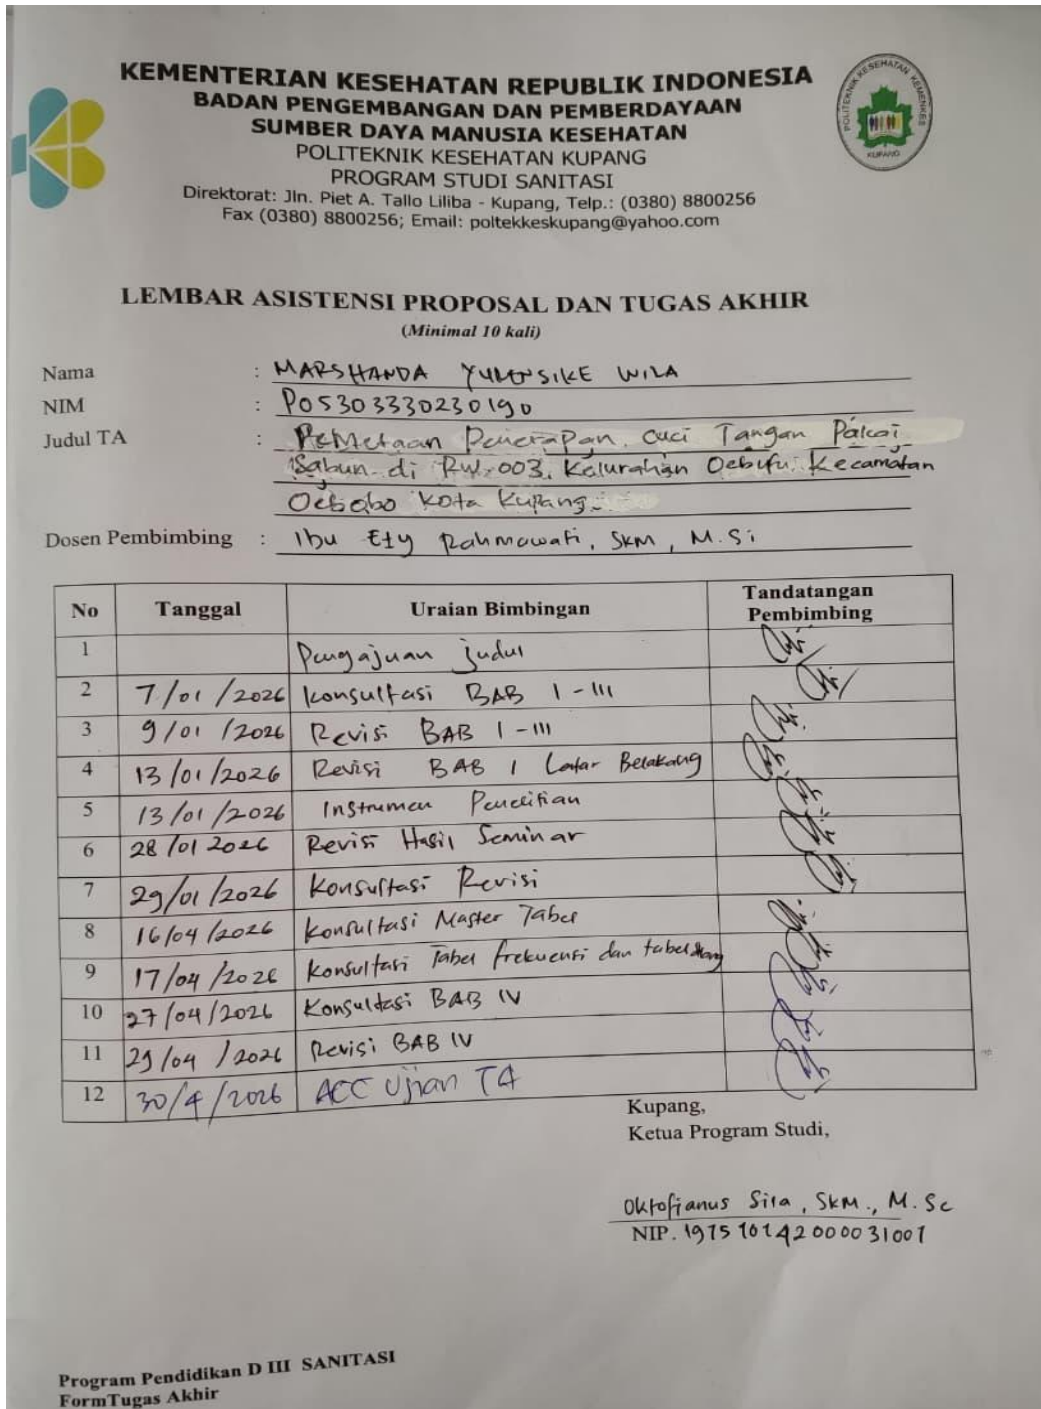 KEMENTERIAN KESEHATAN REPUBLIK INDONESIA
BADAN PENGEMBANGAN DAN PEMBERDAYAAN
SUMBER DAYA MANUSIA KESEHATAN
POLITEKNIK KESEHATAN KUPANG
PROGRAM STUDI SANITASI
Direktorat: Jln. Piet A. Tallo Liliba - Kupang, Telp.: (0380) 8800256
Fax (0380) 8800256; Email: poltekkeskupang@yahoo.com
POLITEKNIK KESEHATAN KEMENKES
KUPANG
LEMBAR ASISTENSI PROPOSAL DAN TUGAS AKHIR
(Minimal 10 kali)
Nama : MARSHANDA YULENSIKE WILA
NIM : PO5303330230190
Judul TA : Pemetaan Penerapan Cuci Tangan Pakai
Sabun di RW. 003. Kelurahan Oebufu Kecamatan
Oebobo Kota Kupang.
Dosen Pembimbing : Ibu Ety Rahmawati, SKM, M.Si
No Tanggal Uraian Bimbingan Tandatangan Pembimbing
1 Pengajuan judul
2 7/01/2026 Konsultasi BAB I-III
3 9/01/2026 Revisi BAB I-III
4 13/01/2026 Revisi BAB I Latar Belakang
5 13/01/2026 Instrumen Penelitian
6 28/01 2026 Revisi Hasil Seminar
7 29/01/2026 Konsultasi Revisi
8 16/04/2026 Konsultasi Master Tabel
9 17/04/2026 Konsultasi Tabel frekuensi dan tabel
10 27/04/2026 Konsultasi BAB IV
11 29/04/2026 Revisi BAB IV
12 30/4/2026 ACC Ujian TA
Kupang,
Ketua Program Studi,
Oktofianus Sila, SKM., M.Sc
NIP. 197510142000031001
Program Pendidikan D III SANITASI
FormTugas Akhir